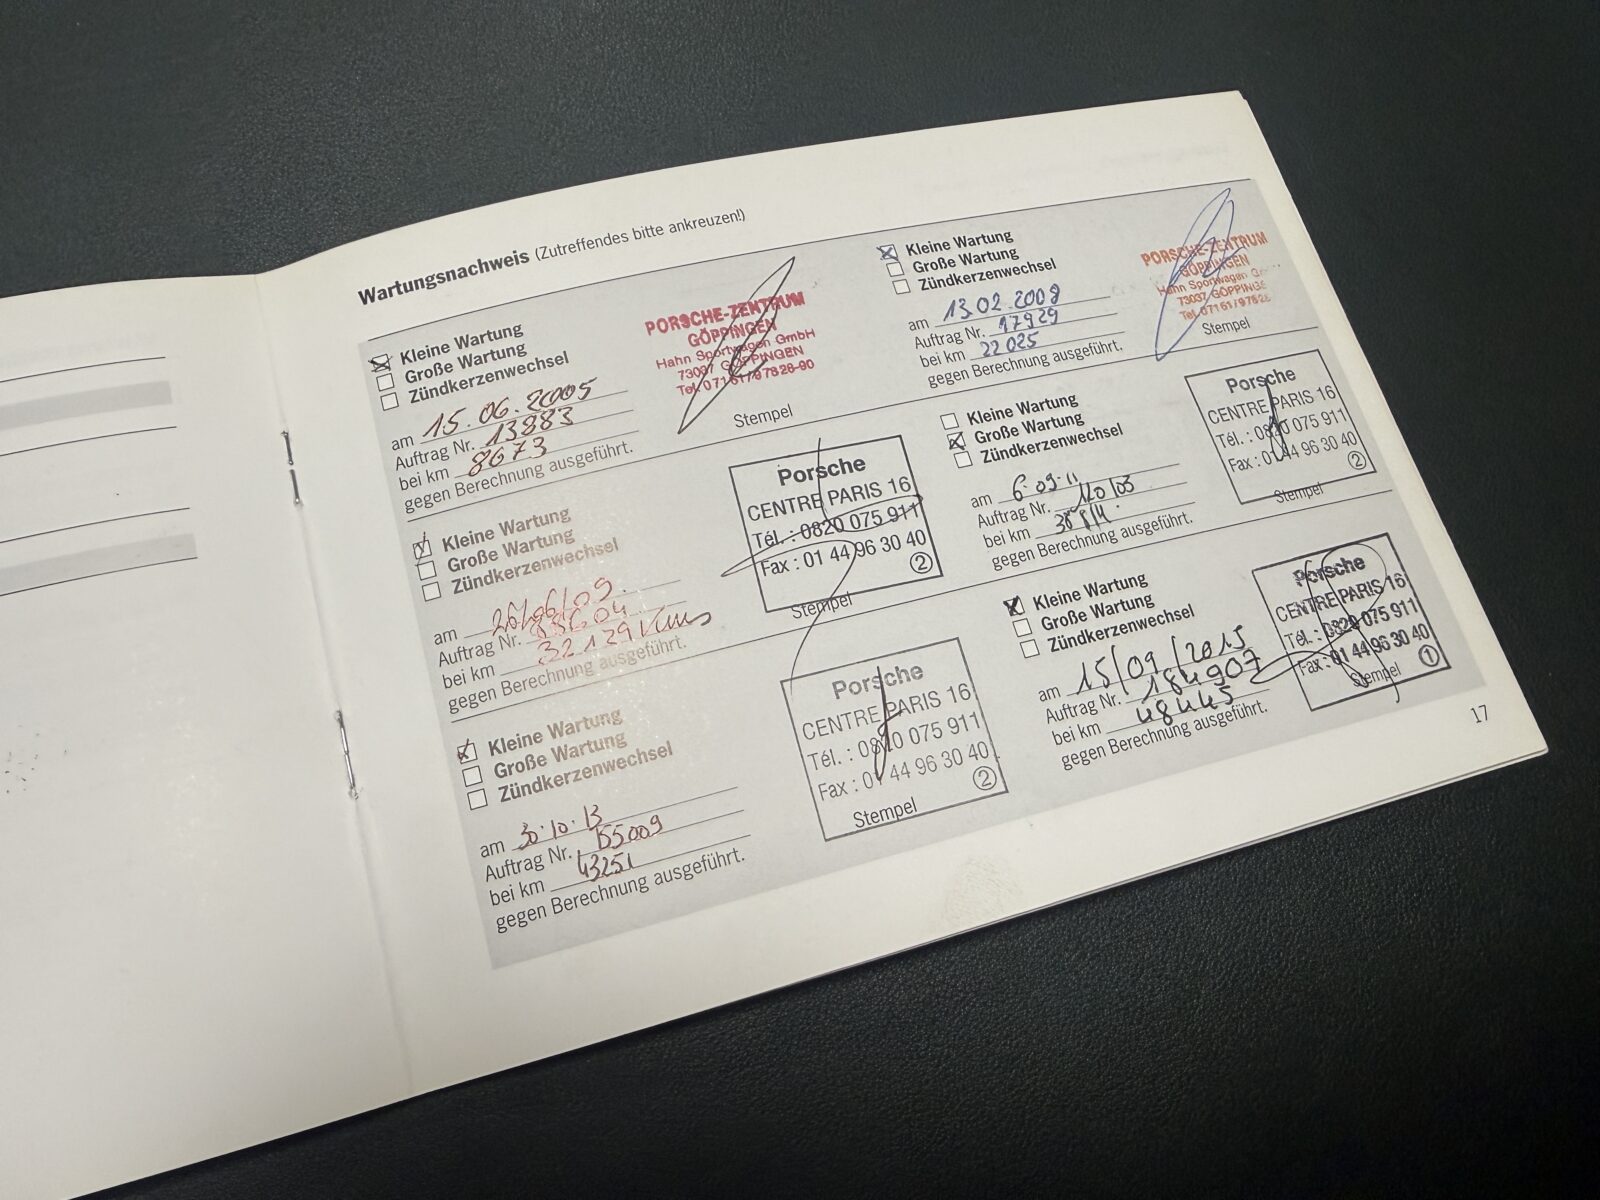 Wartungsnachweis (Zutreffendes bitte ankreuzen!)
Kleine Wartung
Große Wartung
Zündkerzenwechsel
am 15.06.2005
Auftrag Nr. 13883
bei km 8673
gegen Berechnung ausgeführt.
PORSCHE-ZENTRUM
GÖPPINGEN
Hahn Sportwagen GmbH
73037 GÖPPINGEN
Tel. 07161/97828-90
Stempel
Kleine Wartung
Große Wartung
Zündkerzenwechsel
am 13.02.2008
Auftrag Nr. 17929
bei km 22025
gegen Berechnung ausgeführt.
PORSCHE-ZENTRUM
GÖPPINGEN
Hahn Sportwagen
73037 GÖPPINGEN
Tel. 07161/97828
Stempel
Kleine Wartung
Große Wartung
Zündkerzenwechsel
am 26/06/09.
Auftrag Nr.
bei km 32129 Kms
gegen Berechnung ausgeführt.
Porsche
CENTRE PARIS 16
Tél. : 0820 075 911
Fax : 01 44 96 30 40
2
Stempel
Kleine Wartung
Große Wartung
Zündkerzenwechsel
am 6.09.11
Auftrag Nr. 120103
bei km
gegen Berechnung ausgeführt.
Porsche
CENTRE PARIS 16
Tél. : 0820 075 911
Fax : 01 44 96 30 40
2
Stempel
Kleine Wartung
Große Wartung
Zündkerzenwechsel
am 30.10.13
Auftrag Nr. 155009
bei km 43251
gegen Berechnung ausgeführt.
Porsche
CENTRE PARIS 16
Tél. : 0820 075 911
Fax : 01 44 96 30 40
2
Stempel
Kleine Wartung
Große Wartung
Zündkerzenwechsel
am 15/09/2015
Auftrag Nr. 184907
bei km 48445
gegen Berechnung ausgeführt.
Porsche
CENTRE PARIS 16
Tél. : 0820 075 911
Fax : 01 44 96 30 40
1
Stempel
17